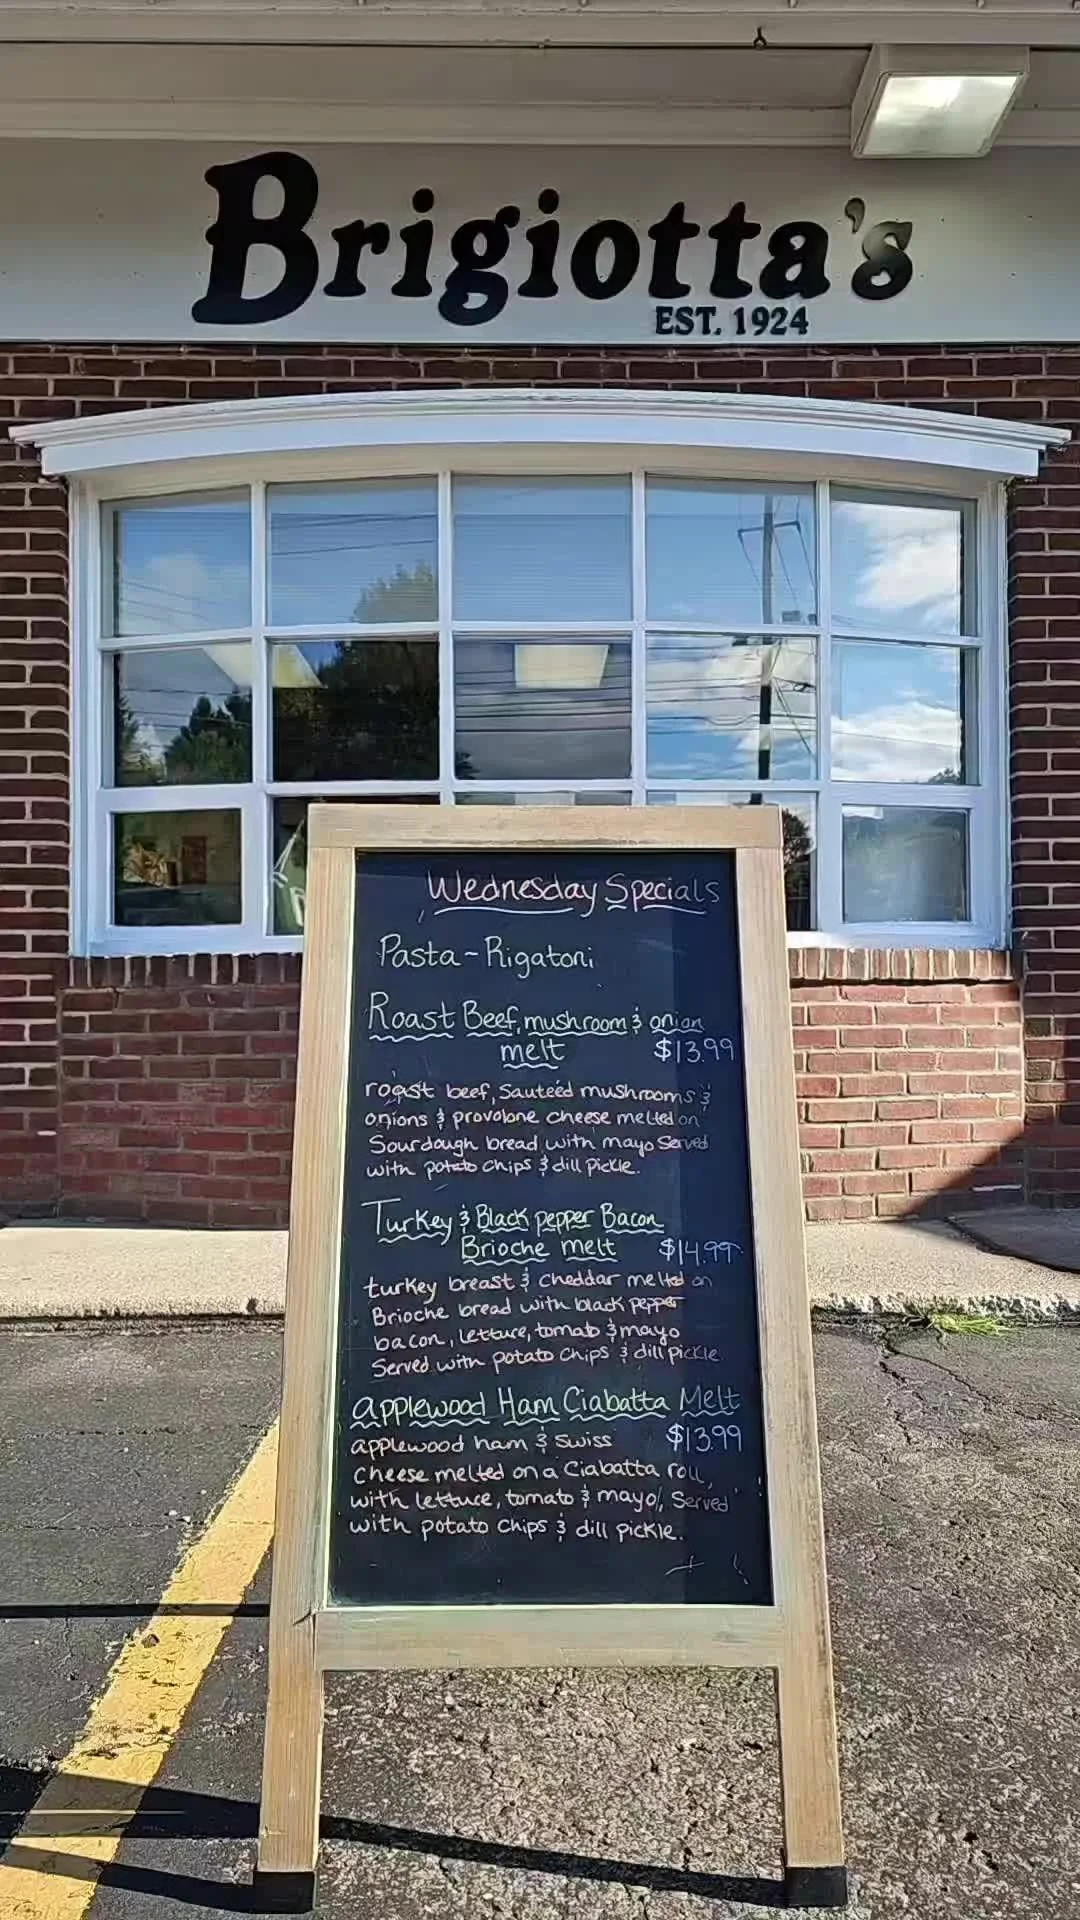 Brigiotta's
EST. 1924
Wednesday Specials
Pasta ~ Rigatoni
Roast Beef, mushroom & onion
melt $13.99
roast beef, Sauteéd mushrooms &
onions & provolone cheese melted on
Sourdough bread with mayo Served
with potato chips & dill pickle.
Turkey & Black pepper Bacon
Brioche melt $14.99
turkey breast & cheddar melted on
Brioche bread with black pepper
bacon, lettuce, tomato & mayo
Served with potato chips & dill pickle
applewood Ham Ciabatta Melt
$13.99
applewood ham & Swiss
Cheese melted on a Ciabatta roll,
with lettuce, tomato & mayo, Served
with potato chips & dill pickle.